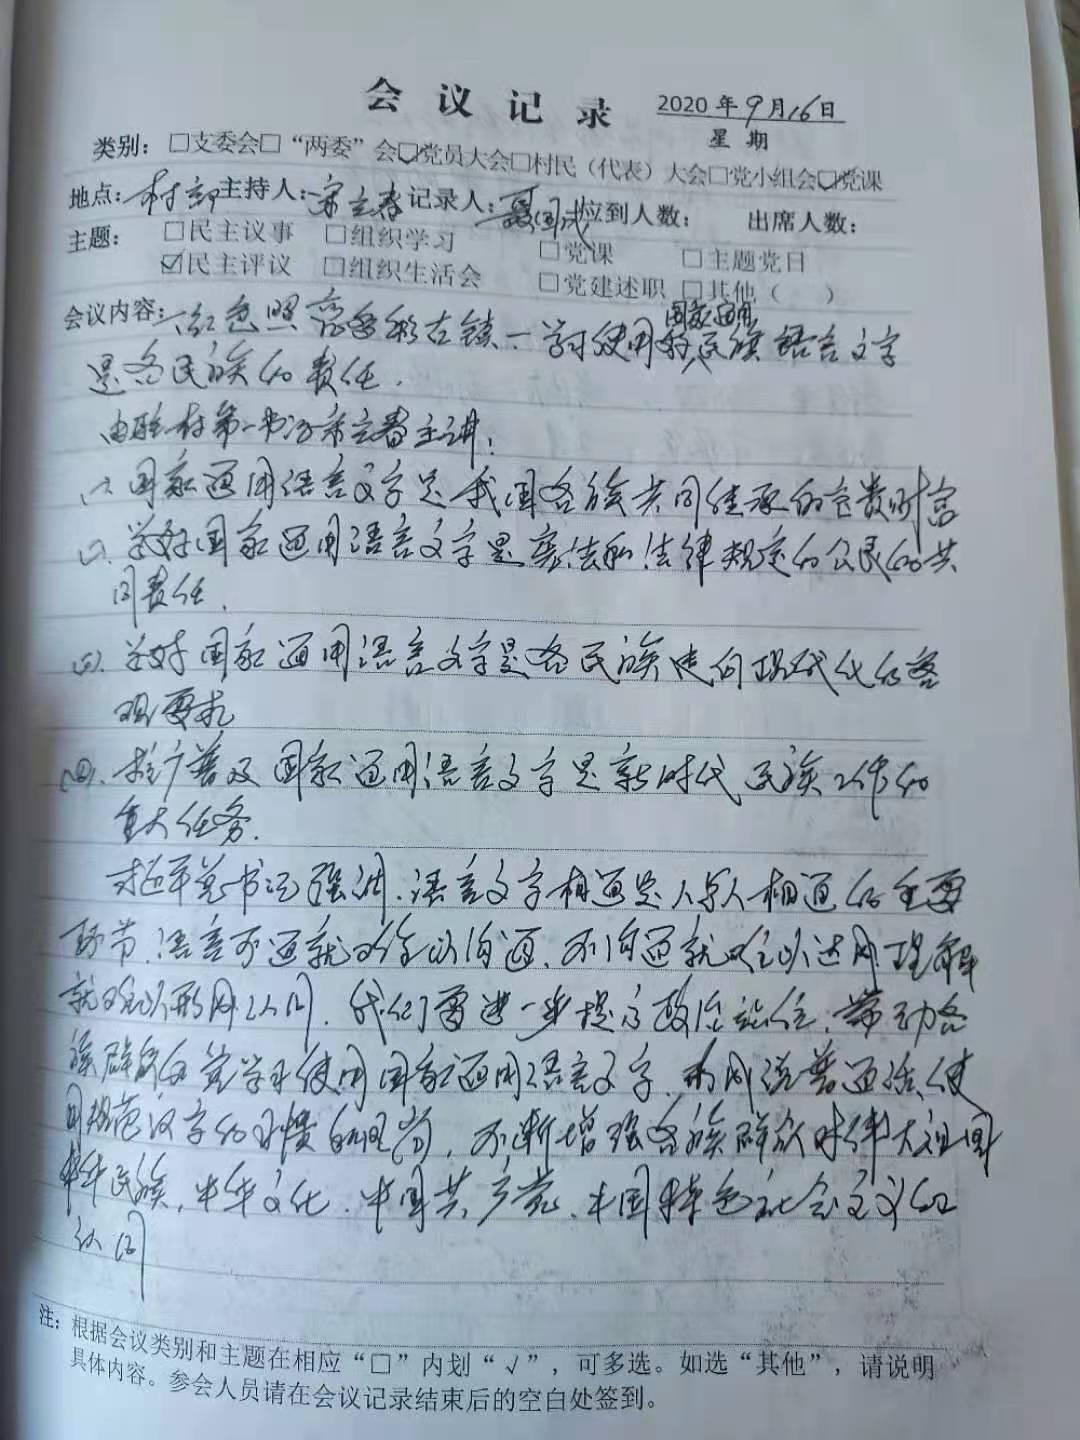 会议记录 2020年9月16日
星期
类别：□支委会□“两委”会☑党员大会□村民（代表）大会□党小组会☑党课
地点：村部 主持人：宋立春 记录人：聂国成 应到人数： 出席人数：
主题：□民主议事 □组织学习 □党课 □主题党日
☑民主评议 □组织生活会 □党建述职 □其他（ ）
国家通用
会议内容：红色照 古镇一学习使用 民族语言文字
是各民族的责任.
由驻村第一书记宋立春主讲：
(一). 国家通用语言文字是我国各族共同继承的宝贵财富
(二). 学好国家通用语言文字是宪法和法律规定的公民的共
同责任.
(三). 学好国家通用语言文字是各民族走向现代化的客
观要求
(四). 推广普及国家通用语言文字是新时代民族工作的
重大任务.
习近平总书记强调、语言文字相通是人与人相通的重要
环节、语言不通就难以沟通、不沟通就难以达成理解
就难以形成认同. 我们要进一步提高政治站位、带动各
族群众自觉学习使用国家通用语言文字、形成说普通话、使
用规范汉字的习惯和风尚，不断增强各族群众对伟大祖国
中华民族、中华文化、中国共产党、中国特色社会主义的
认同
注：根据会议类别和主题在相应“□”内划“√”，可多选。如选“其他”，请说明
具体内容。参会人员请在会议记录结束后的空白处签到。